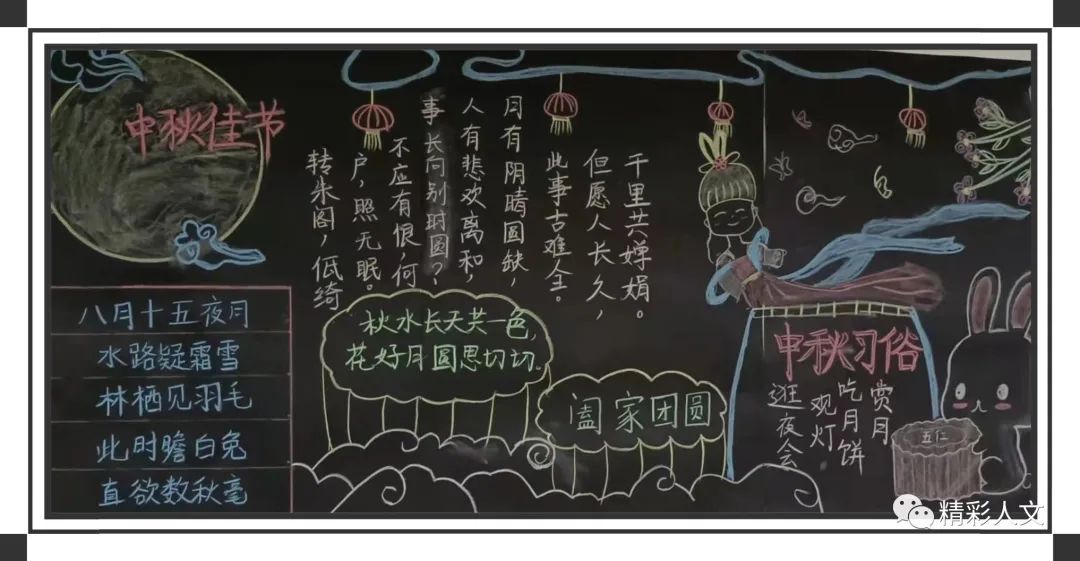 中秋佳节
八月十五夜月
水路疑霜雪
林栖见羽毛
此时瞻白兔
直欲数秋毫
转朱阁，低绮
户，照无眠。
不应有恨，何
事长向别时圆？
人有悲欢离和，
月有阴晴圆缺，
此事古难全。
但愿人长久，
千里共婵娟。
秋水长天共一色，
花好月圆思切切。
阖家团圆
中秋习俗
赏月
吃月饼
观灯
逛夜会
五仁
精彩人文